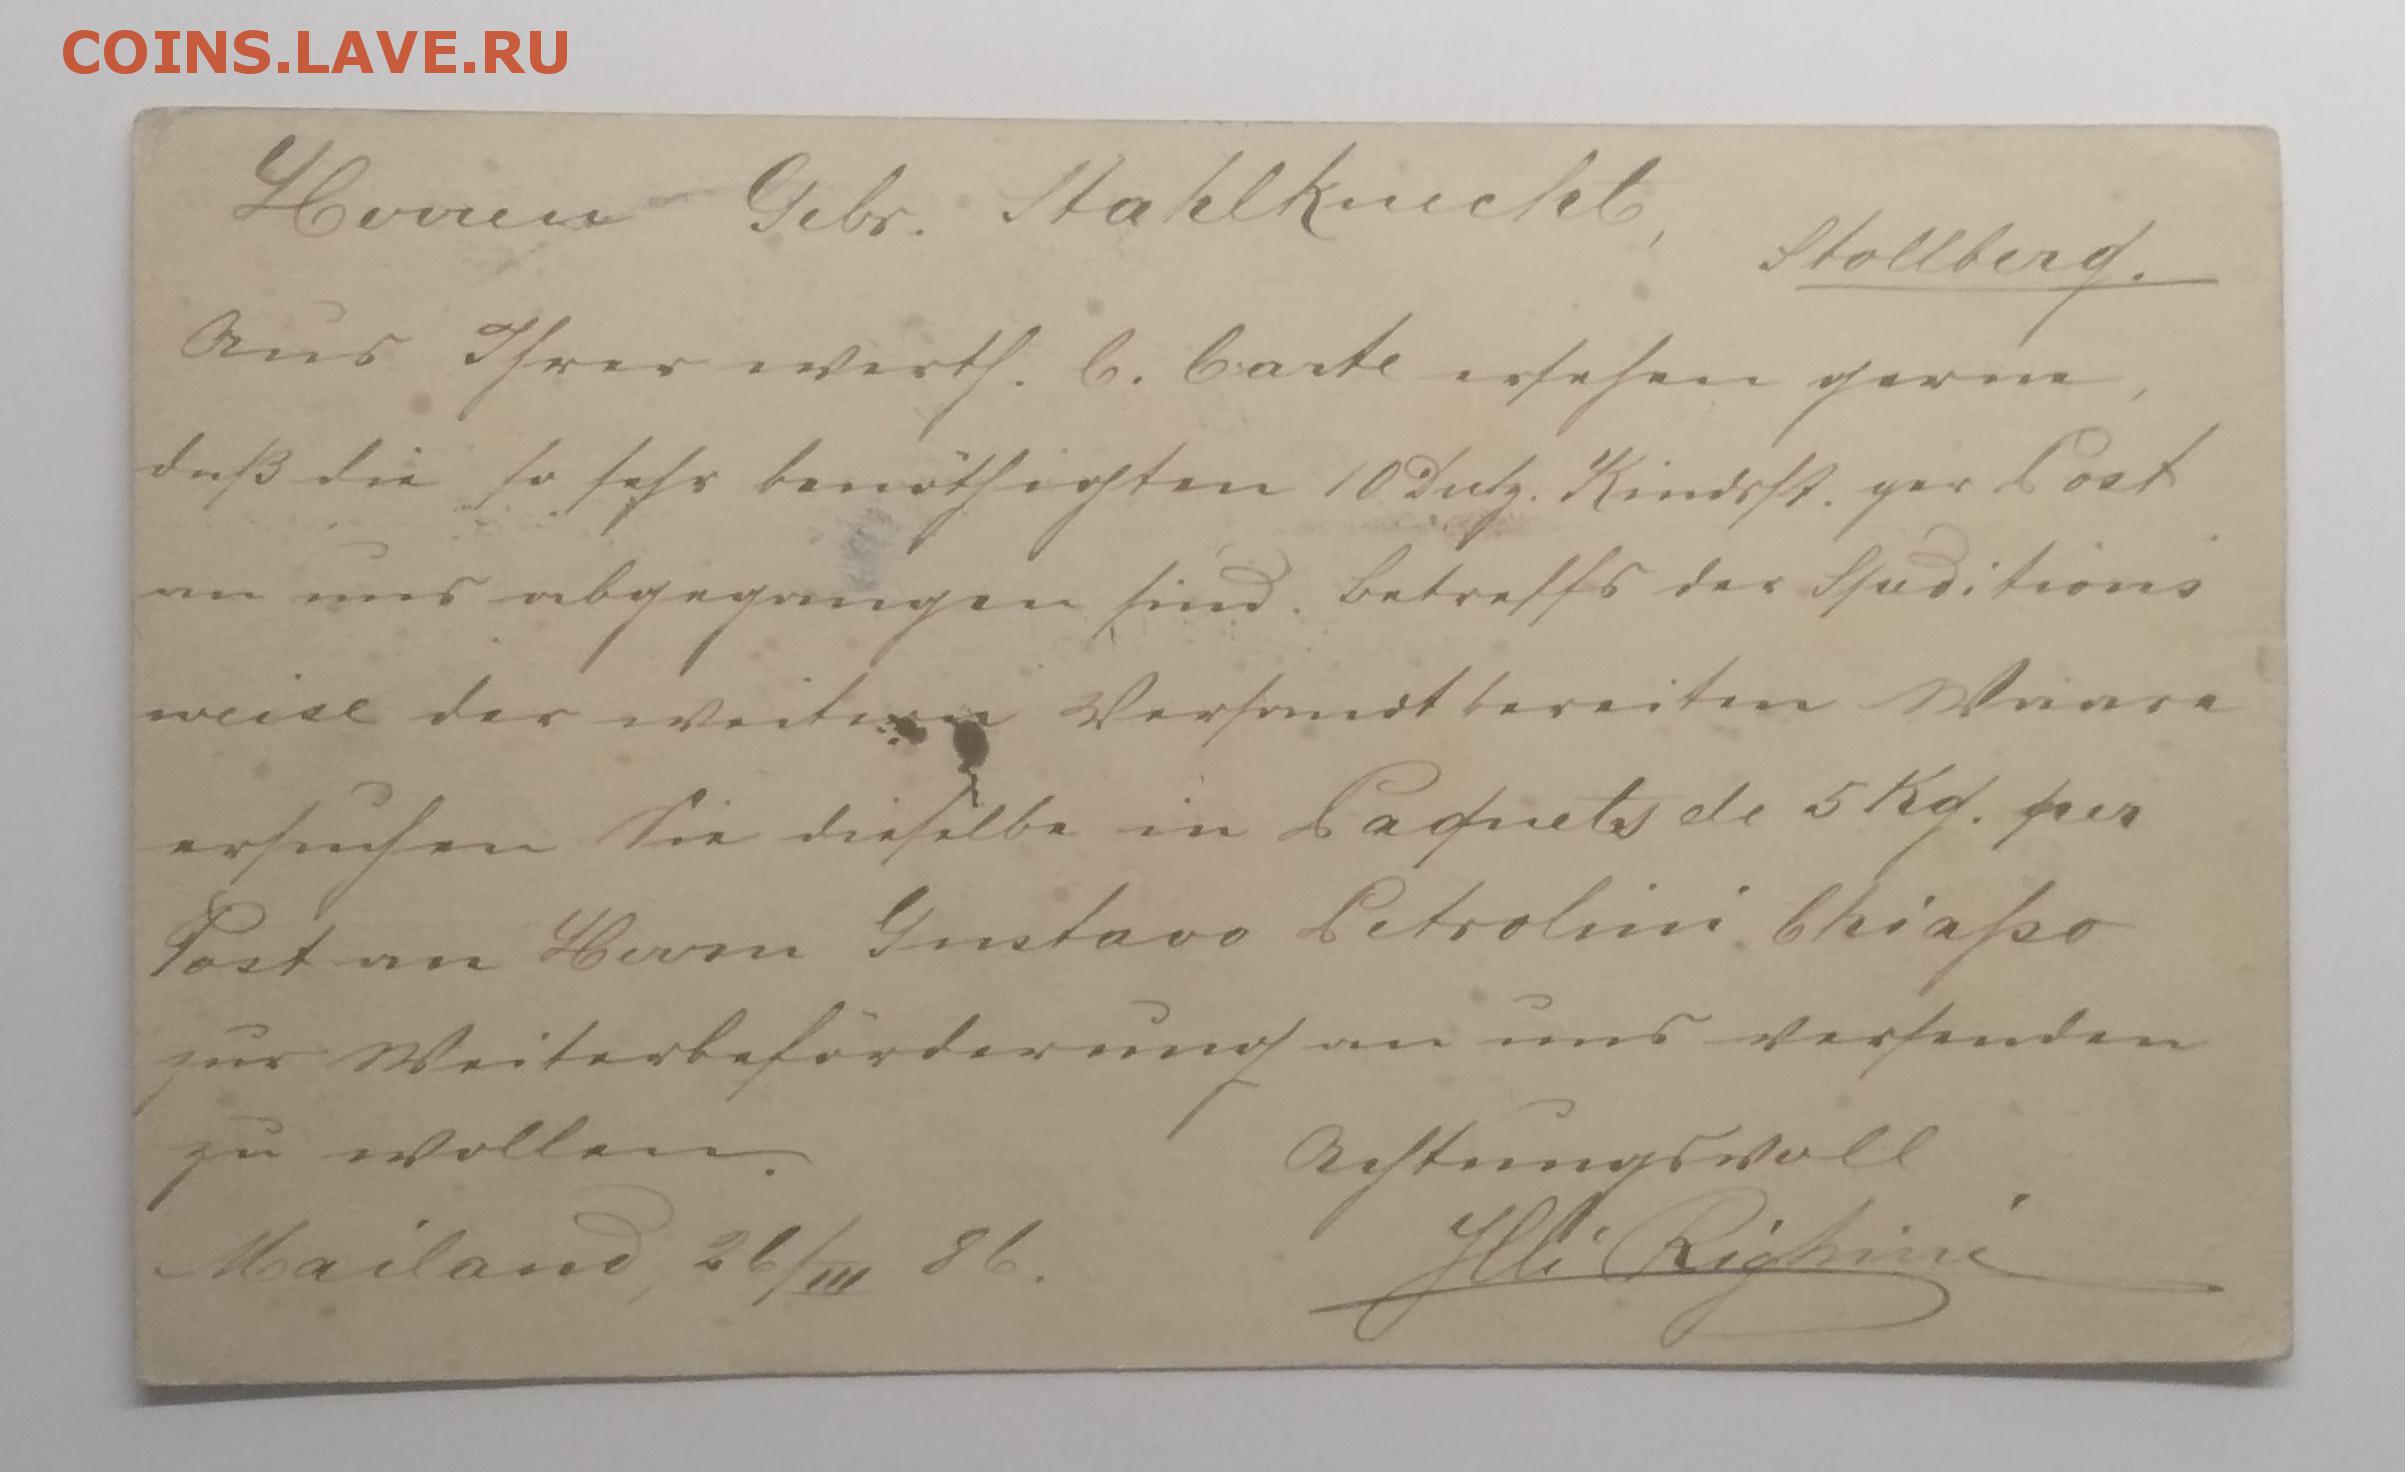 COINS.LAVE.RU
Herren Gebr. Stahlknecht,
Stollberg.
Aus Ihrer werth. C. Carte ersehen gerne,
daß die so sehr benöthigten 10 Dutz. Kindsst. per Post
an uns abgegangen sind. Betreffs der Speditions
weise der weitern Versandtbereiten Waare
ersuchen Sie dieselbe in Paquets de 5 Kg. per
Post an Herrn Gustavo Petrolini Chiaßo
zur Weiterbeförderung an uns versenden
zu wollen.
Achtungsvoll
Mailand, 26/III 86.
Flli Righini